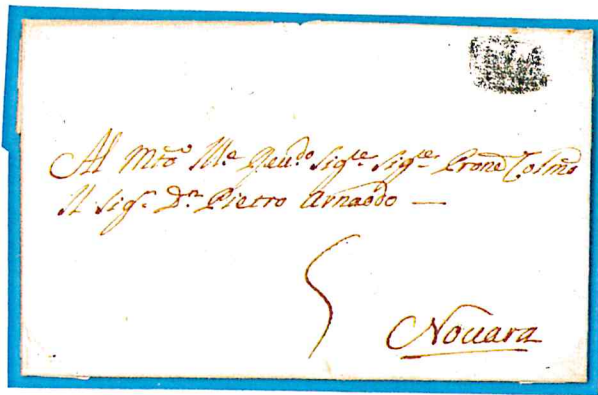 Al Mto. Ille Reu.do Sig.re Sig.re Prone Colmo
Il Sig.r D.n Pietro Arnaodo —
5
Nouara